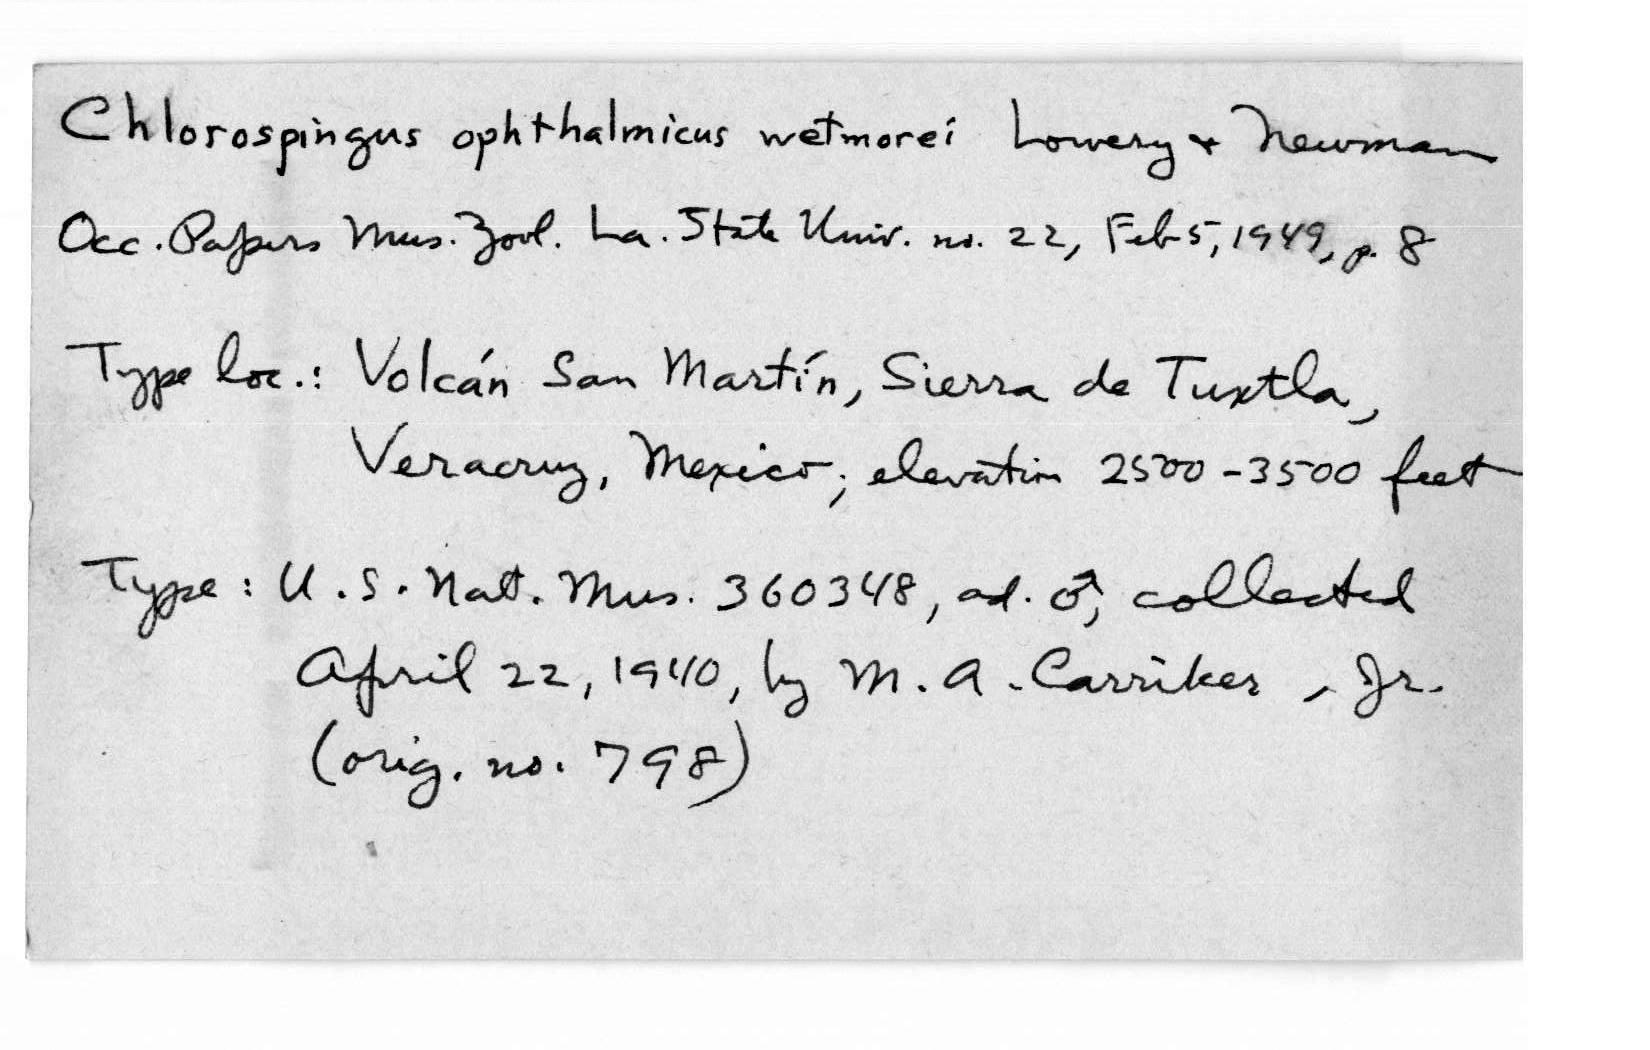 Chlorospingus ophthalmicus wetmorei Lowery + Newman
Occ. Papers Mus. Zool. La. State Univ. no. 22, Feb 5, 1949, p. 8
Type loc.: Volcán San Martín, Sierra de Tuxtla,
Veracruz, Mexico; elevation 2500-3500 feet
Type: U.S. Nat. Mus. 360348, ad. ♂, collected
April 22, 1940, by M. A. Carriker, Jr.
(orig. no. 798)